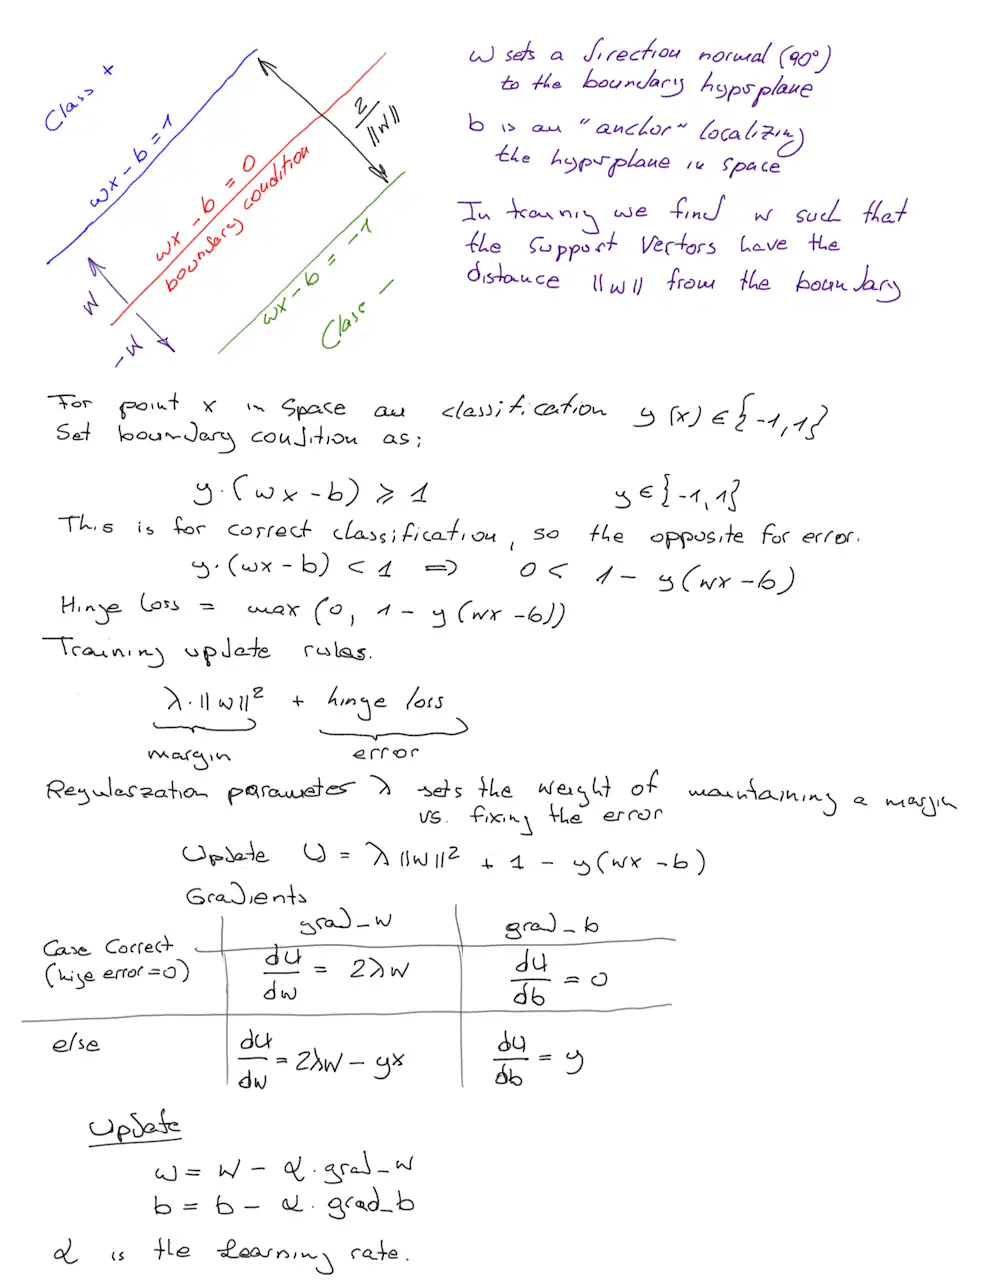 Class +
wx - b = 1
wx - b = 0
boundary condition
wx - b = -1
Class -
2/||w||
w
-w
w sets a direction normal (90°)
to the boundary hyperplane
b is an "anchor" localizing
the hyperplane in space
In training we find w such that
the support vectors have the
distance ||w|| from the boundary
For point x in space an classification y(x) ∈ {-1, 1}
Set boundary condition as:
y·(wx - b) ≥ 1 y ∈ {-1, 1}
This is for correct classification, so the opposite for error.
y·(wx - b) < 1 => 0 < 1 - y(wx - b)
Hinge loss = max (0, 1 - y(wx - b))
Training update rules.
λ·||w||² + hinge loss
margin error
Regularization parameter λ sets the weight of maintaining a margin
vs. fixing the error
Update U = λ||w||² + 1 - y(wx - b)
Gradients
grad_w grad_b
Case Correct
(hige error = 0)
dU/dw = 2λw dU/db = 0
else dU/dw = 2λw - yx dU/db = y
Update
w = w - α·grad_w
b = b - α·grad_b
α is the learning rate.